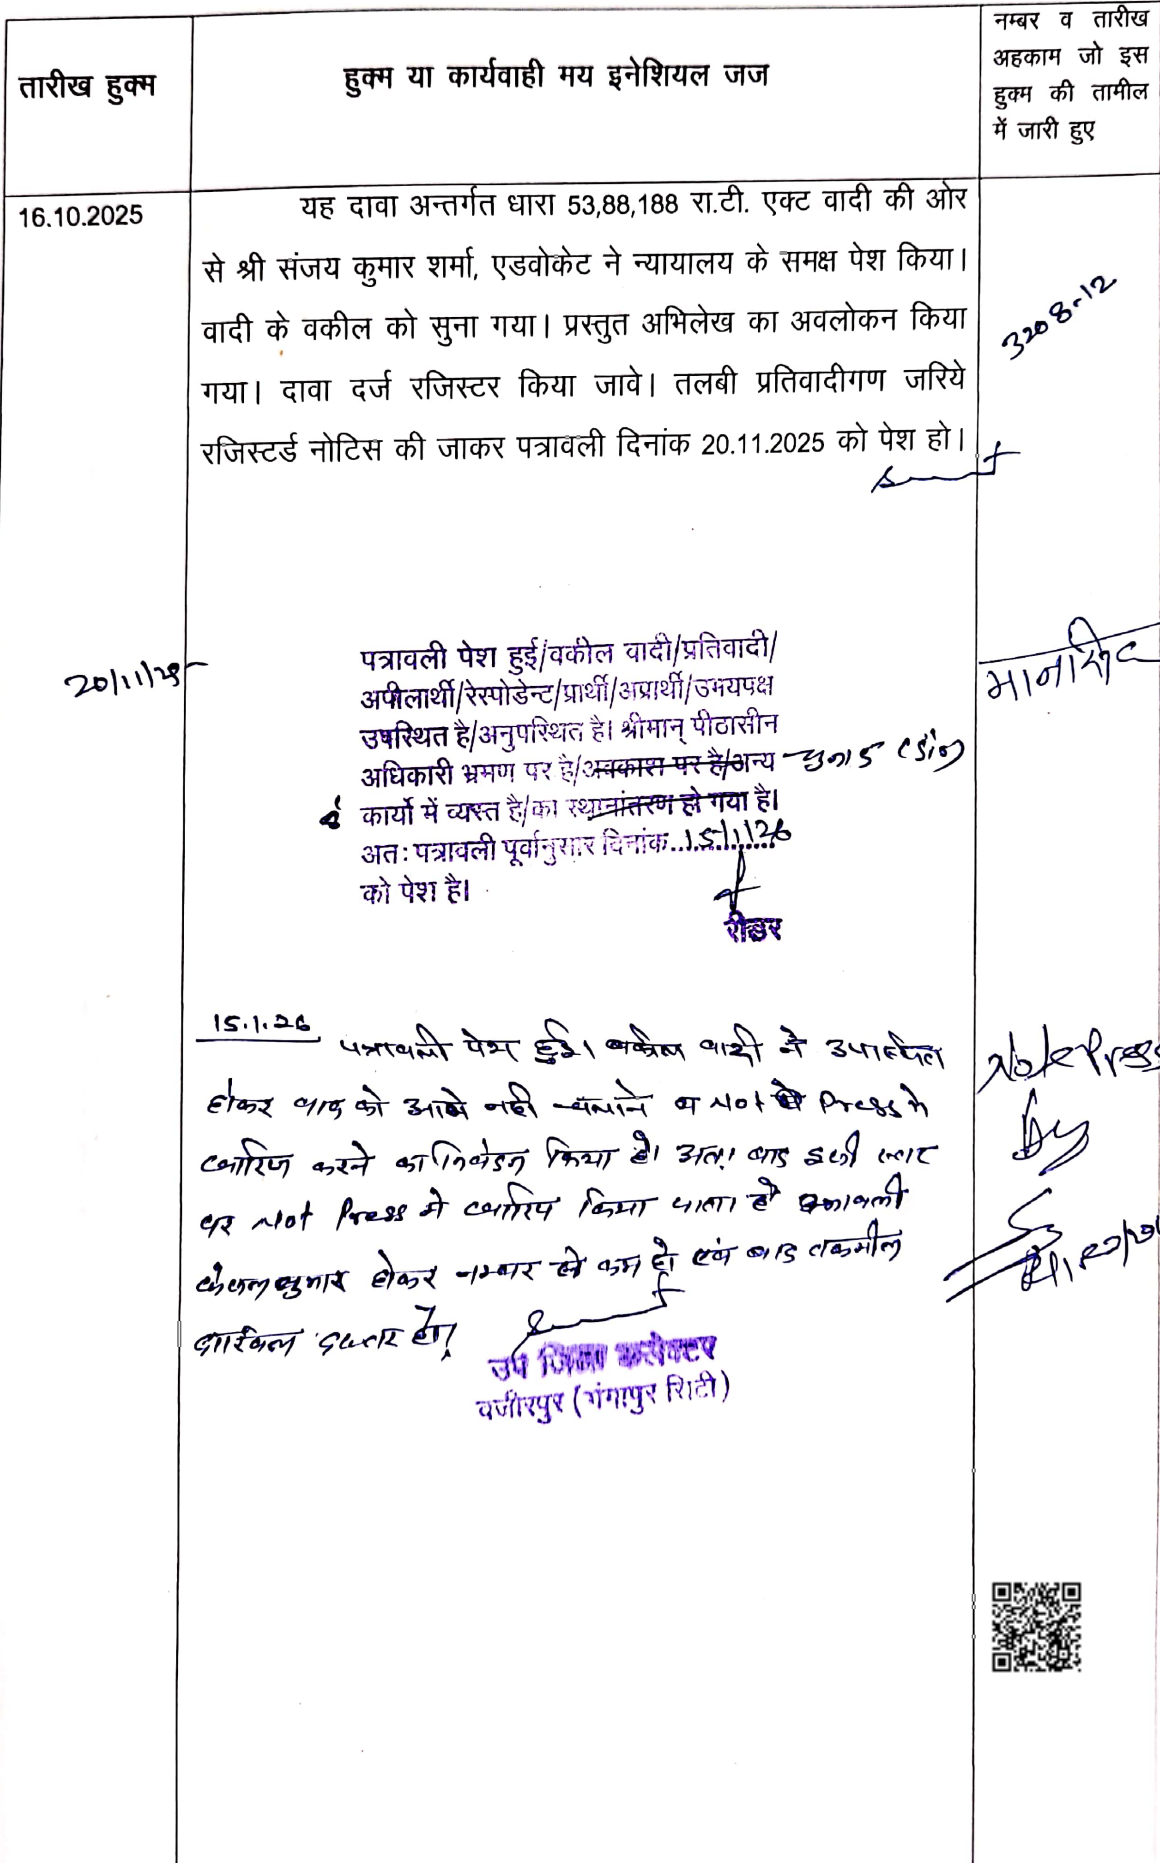 तारीख हुक्म
हुक्म या कार्यवाही मय इनेशियल जज
नम्बर व तारीख
अहकाम जो इस
हुक्म की तामील
में जारी हुए
16.10.2025
यह दावा अन्तर्गत धारा 53,88,188 रा.टी. एक्ट वादी की ओर
से श्री संजय कुमार शर्मा, एडवोकेट ने न्यायालय के समक्ष पेश किया।
वादी के वकील को सुना गया। प्रस्तुत अभिलेख का अवलोकन किया
गया। दावा दर्ज रजिस्टर किया जावे। तलबी प्रतिवादीगण जरिये
रजिस्टर्ड नोटिस की जाकर पत्रावली दिनांक 20.11.2025 को पेश हो।
3208-12
20/11/25
पत्रावली पेश हुई/वकील वादी/प्रतिवादी/
अपीलार्थी/रेस्पोडेन्ट/प्रार्थी/अप्रार्थी/उभयपक्ष
उपस्थित है/अनुपस्थित है। श्रीमान् पीठासीन
अधिकारी भ्रमण पर है/अवकाश पर है/अन्य
कार्यो में व्यस्त है/का स्थानांतरण हो गया है।
अतः पत्रावली पूर्वानुसार दिनांक 15/1/26
को पेश है।
रीडर
15.1.26
पत्रावली पेश हुई। वकील वादी ने उपस्थित
होकर वाद को आगे नही चलाने व Not Press मे
खारिज करने का निवेदन किया है। अतः वाद इसी स्तर
पर Not Press मे खारिज किया जाता है पत्रावली
फैसल शुमार होकर नम्बर से कम हो एवं बाद तकमील
दाखिल दफ्तर हो।
Note Press
उप जिला कलेक्टर
वजीरपुर (गंगापुर सिटी)